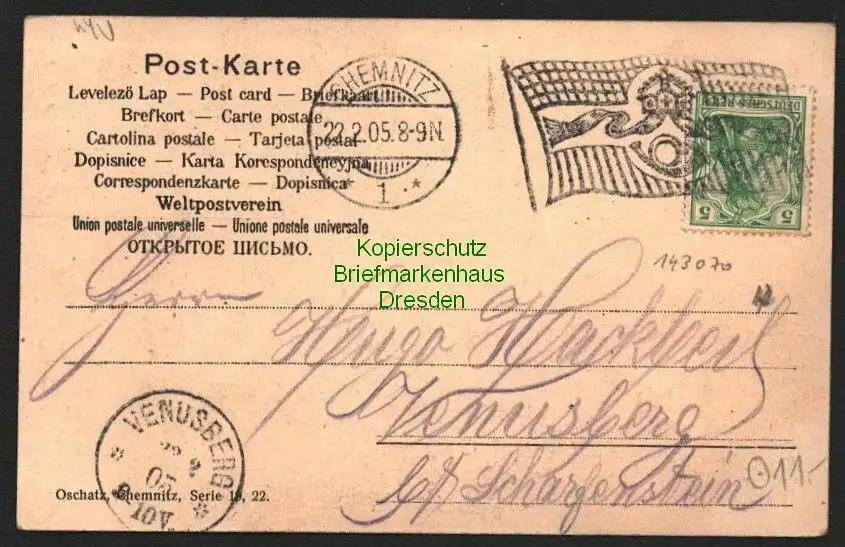 Post-Karte
Levelező Lap — Post card — Briefkaart
Brefkort — Carte postale
Cartolina postale — Tarjeta postal
Dopisnice — Karta Korespondencyjna
Correspondenzkarte — Dopisnica
Weltpostverein
Union postale universelle — Unione postale universale
ОТКРЫТОЕ ПИСЬМО.
CHEMNITZ
22.2.05.8-9N.
* 1 *
DEUTSCHES REICH
5 5
Kopierschutz
Briefmarkenhaus
Dresden
143070
Herrn
Hugo Wackfeil
Venusberg
b/ Scharfenstein
11.-
VENUSBERG
22 2
05
8-10V.
Oschatz, Chemnitz, Serie 19, 22.